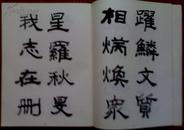 躍鱗文質
相炳煥眾
星羅秋旻
我志在删